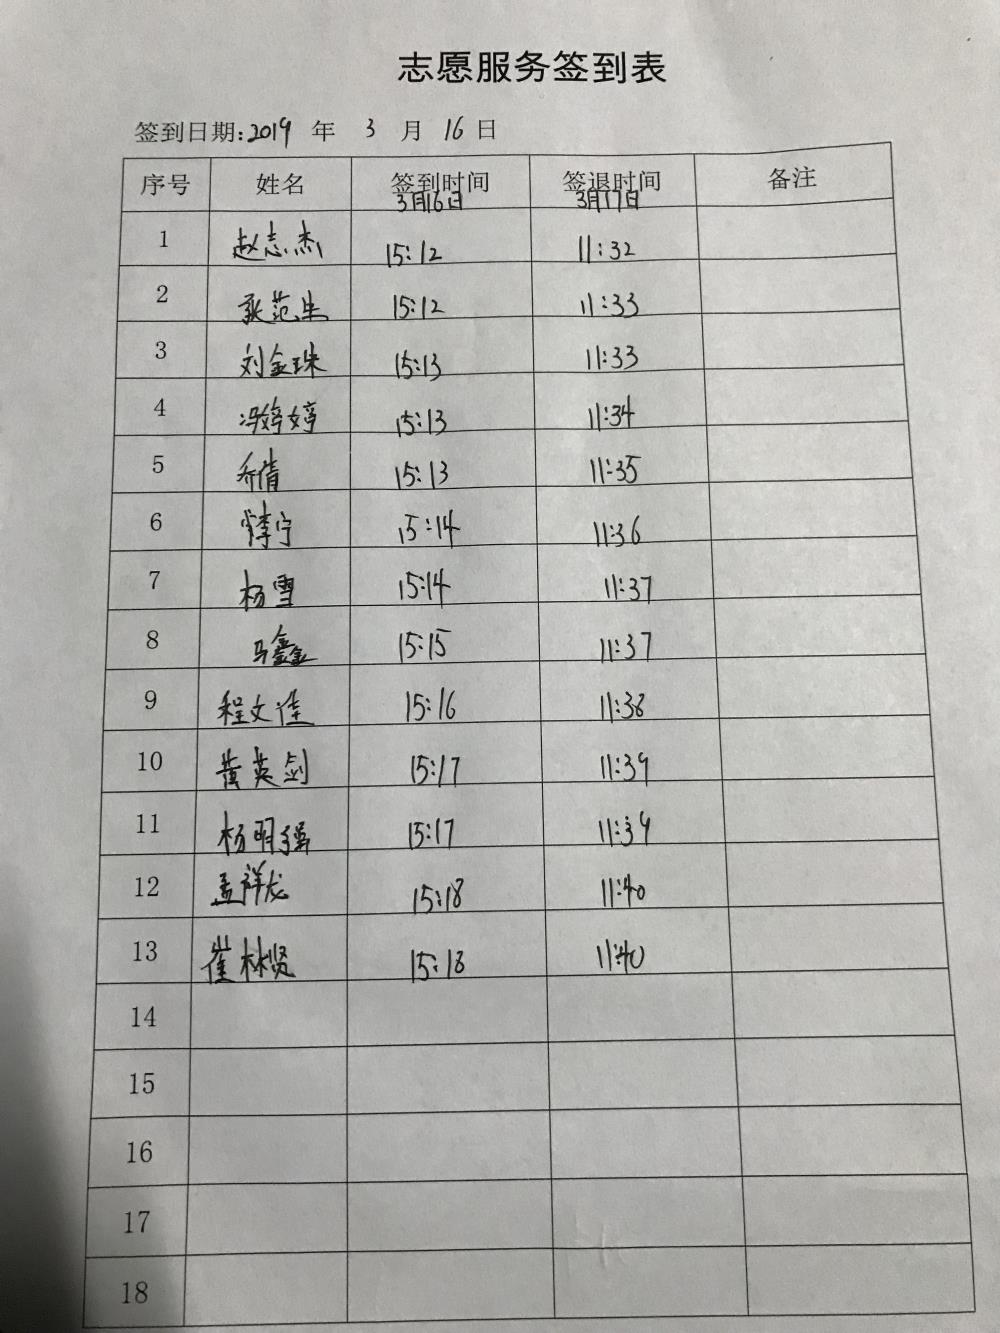 志愿服务签到表
签到日期:2019 年 3 月 16 日
序号 姓名 签到时间 签退时间 备注
3月16日 3月17日
1 赵志杰 15:12 11:32
2 范生 15:12 11:33
3 刘金珠 15:13 11:33
4 冯婷婷 15:13 11:34
5 乔倩 15:13 11:35
6 李宁 15:14 11:36
7 杨雪 15:14 11:37
8 马鑫鑫 15:15 11:37
9 程文佳 15:16 11:38
10 黄英剑 15:17 11:39
11 杨明强 15:17 11:39
12 孟祥龙 15:18 11:40
13 崔林贤 15:18 11:40
14
15
16
17
18